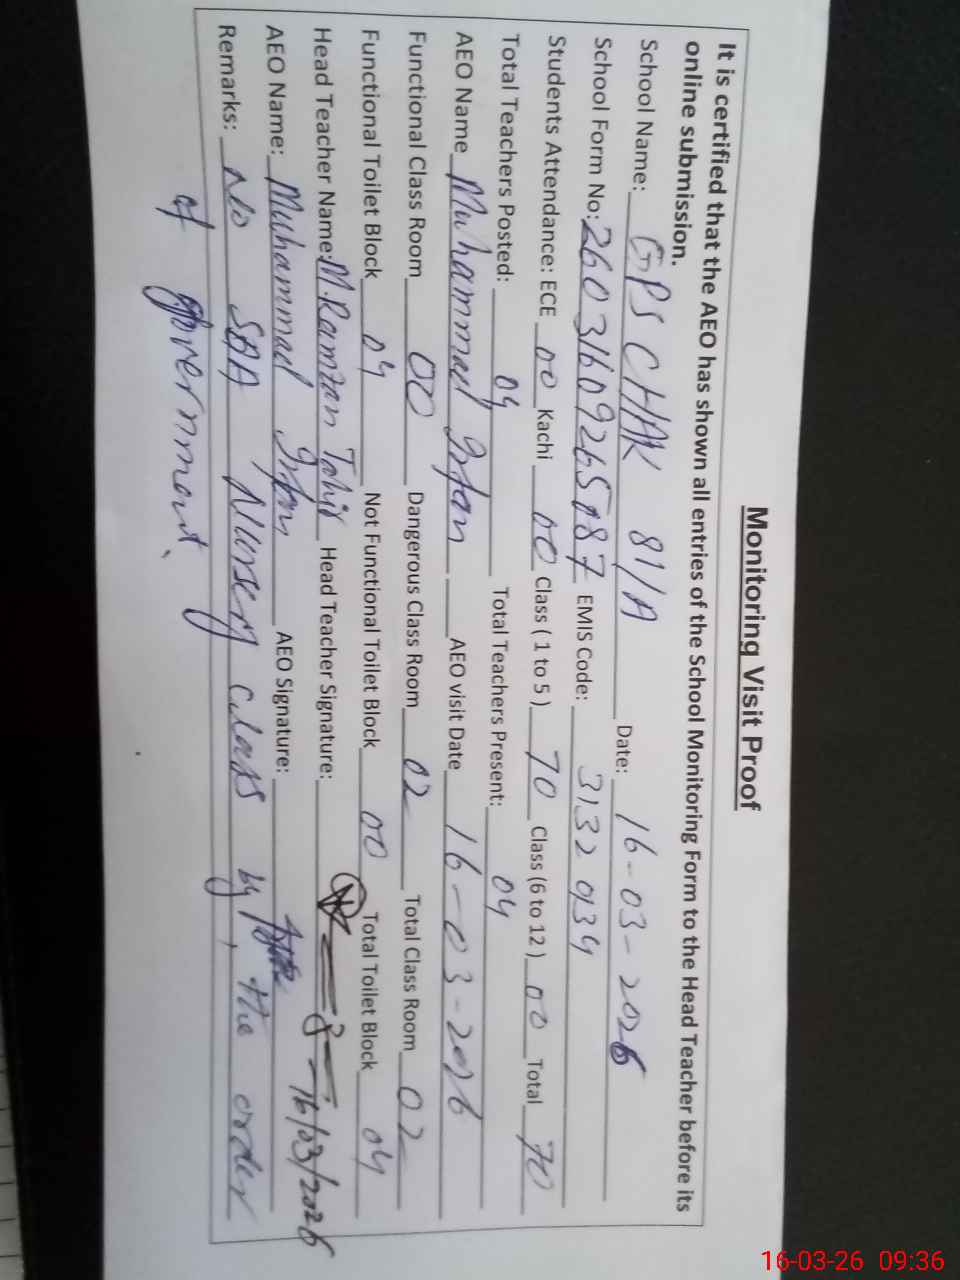 Monitoring Visit Proof
It is certified that the AEO has shown all entries of the School Monitoring Form to the Head Teacher before its
online submission.
School Name: GPS CHAK 81/A Date: 16-03-2026
School Form No: EMIS Code: 31320134
Students Attendance: ECE 00 Kachi 00 Class ( 1 to 5 ) 70 Class (6 to 12 ) 00 Total 70
Total Teachers Posted: 04 Total Teachers Present: 04
AEO Name Muhammad Irfan AEO visit Date 16-03-2026
Functional Class Room 00 Dangerous Class Room 02 Total Class Room 02
Functional Toilet Block 04 Not Functional Toilet Block 00 Total Toilet Block 04
Head Teacher Name: M.Ramzan Tahir Head Teacher Signature: 16/03/2026
AEO Name: Muhammad Irfan AEO Signature:
Remarks: No SBA Nursery class by the order
of government.
16-03-26 09:36